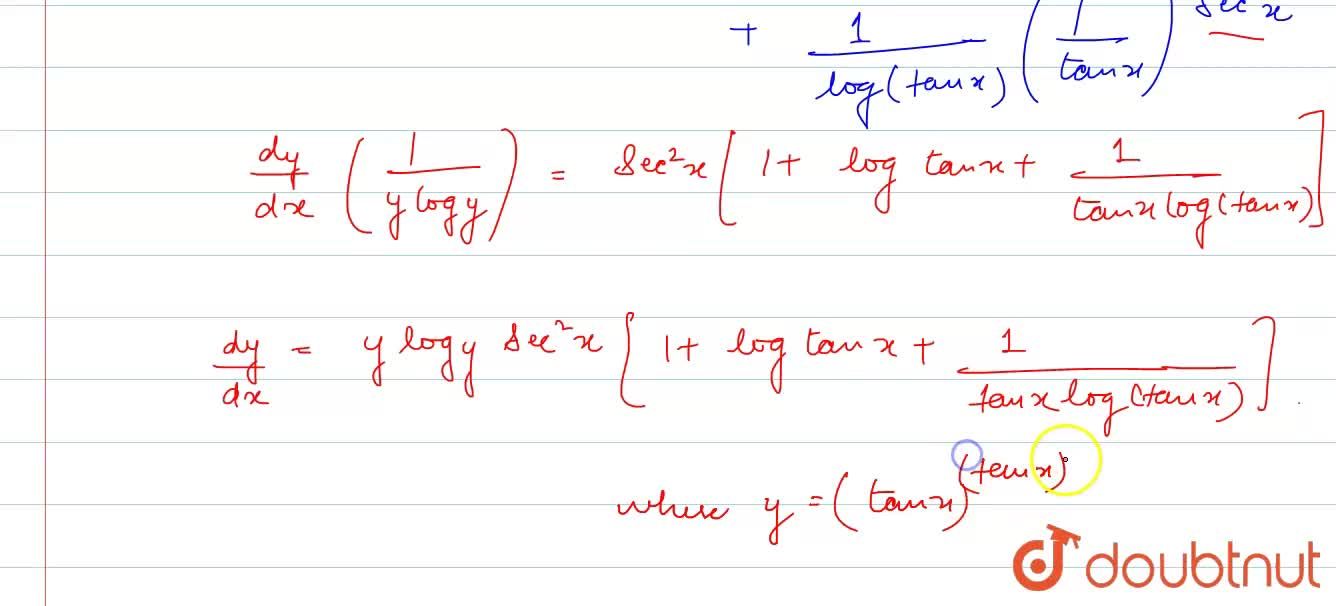 + 1/log(tanx) (1/tanx) sec x
dy/dx (1/y log y) = Sec²x [1+ log tanx + 1/tanx log(tanx)]
dy/dx = y log y Sec²x [1+ log tanx + 1/tanx log(tanx)]
where y = (tanx)^(tanx)
doubtnut